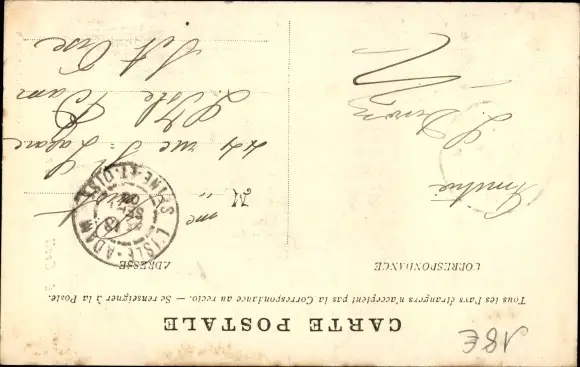 CARTE POSTALE
Tous les Pays étrangers n'acceptent pas la Correspondance au recto. — Se renseigner à la Poste.
CORRESPONDANCE
ADRESSE
Amitiés
L.
M me
44 rue St Lazare
L'Isle Adam
S et Oise
L'ISLE-ADAM
SEINE-ET-OISE
18€